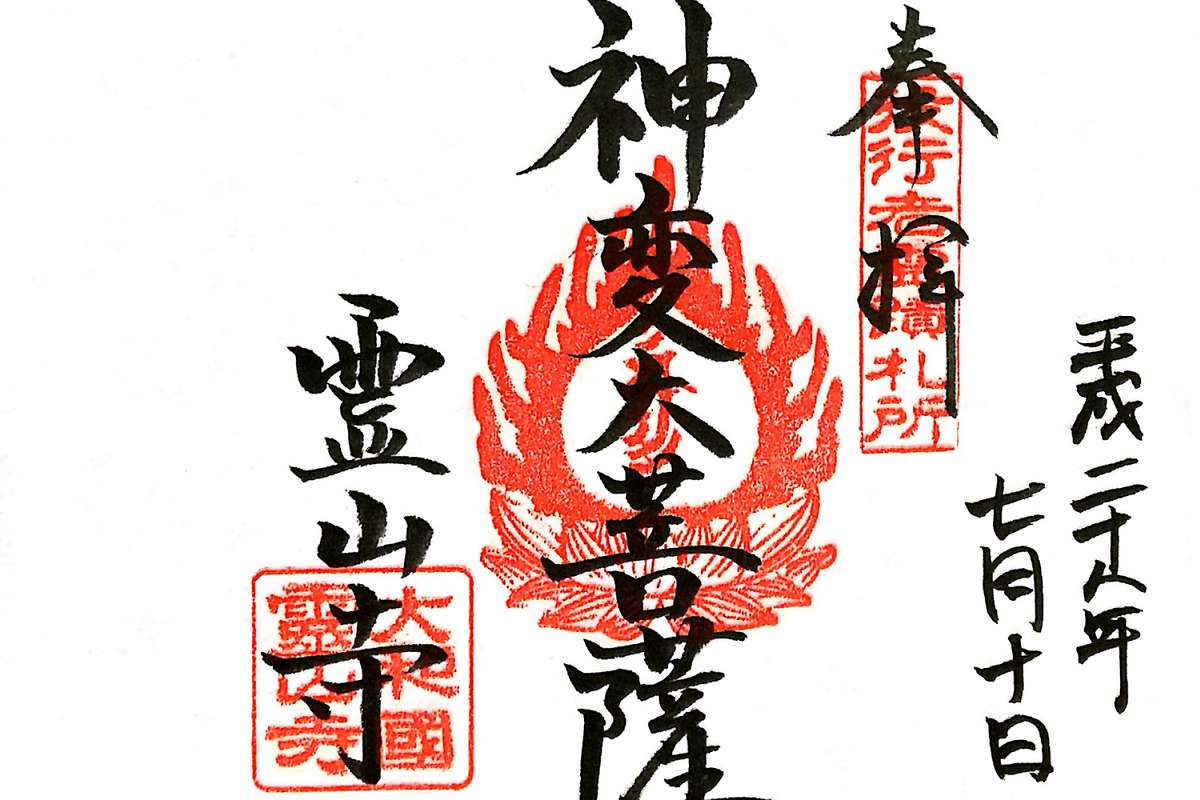 奉拝
役行者霊蹟札所
平成二十八年
七月十日
神変大菩薩
霊山寺
大和國
靈山寺